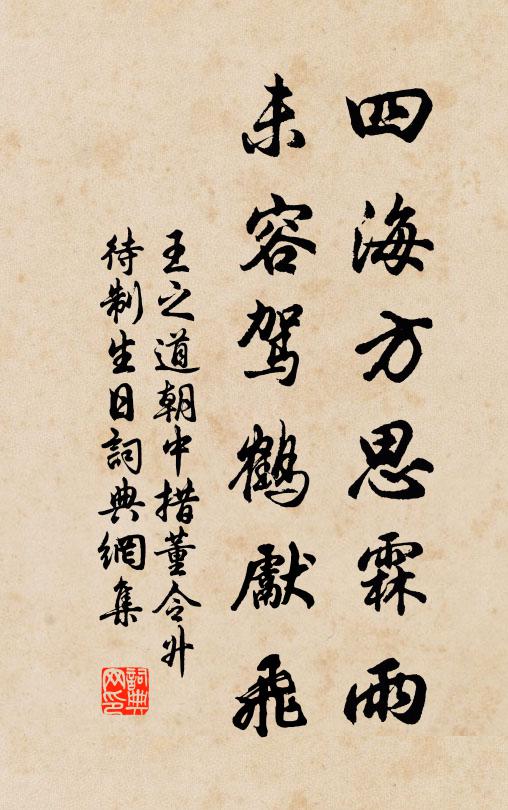 四海方思霖雨
未容駕鶴獻飛
王之道朝中措董令升
待制生日詞典網集
詞典
网印